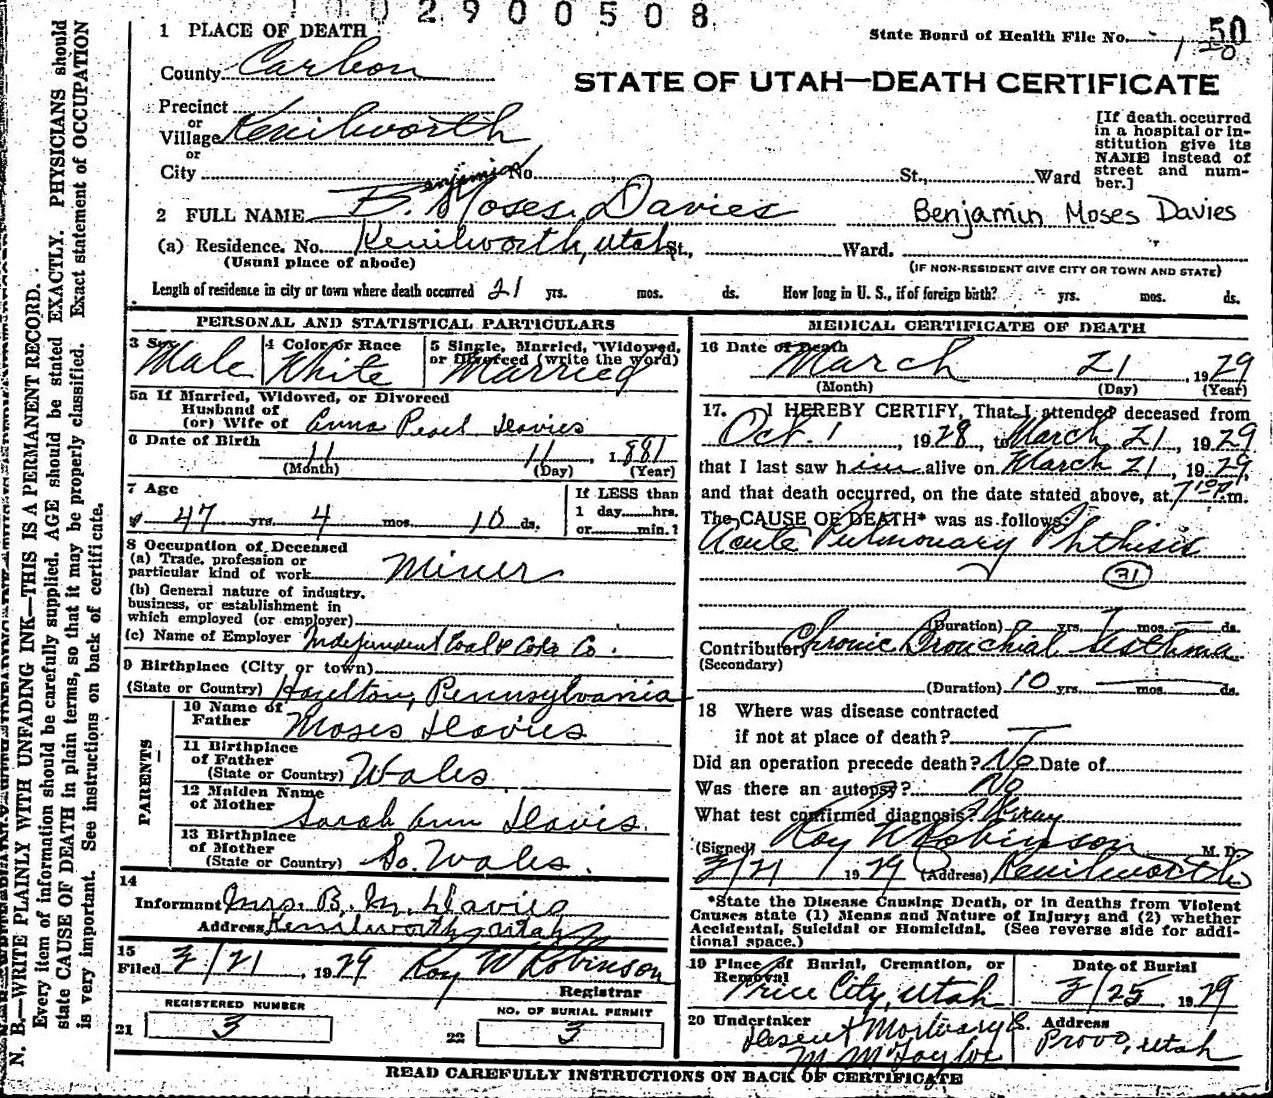 002900508
State Board of Health File No. 50
1 20
1 PLACE OF DEATH
County Carbon
STATE OF UTAH—DEATH CERTIFICATE
Precinct
or
Village Kenilworth
or
City No. St., Ward
[If death occurred in a hospital or institution give its NAME instead of street and number.]
Benjamin
2 FULL NAME B. Moses Davies Benjamin Moses Davies
(a) Residence. No. Kenilworth, Utah St., Ward.
(Usual place of abode) (IF NON-RESIDENT GIVE CITY OR TOWN AND STATE)
Length of residence in city or town where death occurred 21 yrs. mos. ds. How long in U. S., if of foreign birth? yrs. mos. ds.
PERSONAL AND STATISTICAL PARTICULARS
3 Sex Male
4 Color or Race White
5 Single, Married, Widowed, or Divorced (write the word) Married
5a If Married, Widowed, or Divorced
Husband of
(or) Wife of Anna Pearl Davies
6 Date of Birth 11 11, 1881
(Month) (Day) (Year)
7 Age
47 yrs. 4 mos. 10 ds.
If LESS than
1 day hrs.
or min.?
8 Occupation of Deceased
(a) Trade, profession or
particular kind of work Miner
(b) General nature of industry,
business, or establishment in
which employed (or employer)
(c) Name of Employer Independent Coal & Coke Co.
9 Birthplace (City or town)
(State or Country) Hazelton, Pennsylvania
PARENTS
10 Name of
Father Moses Davies
11 Birthplace
of Father
(State or Country) Wales
12 Maiden Name
of Mother Sarah Ann Davis
13 Birthplace
of Mother
(State or Country) So. Wales.
14
Informant Mrs. B. M. Davies
Address Kenilworth, Utah
15
Filed 3/21, 1929 Roy W Robinson
Registrar
REGISTERED NUMBER
21 3
NO. OF BURIAL PERMIT
22 3
MEDICAL CERTIFICATE OF DEATH
16 Date of Death
March 21, 1929
(Month) (Day) (Year)
17. I HEREBY CERTIFY, That I attended deceased from
Oct. 1, 1928, to March 21, 1929
that I last saw him alive on March 21, 1929,
and that death occurred, on the date stated above, at 7 P.m.
The CAUSE OF DEATH* was as follows:
Acute Pulmonary Phthisis
31
(Duration) yrs. 7 mos. — ds.
Contributory Chronic Bronchial Asthma
(Secondary)
(Duration) 10 yrs. mos. ds.
18 Where was disease contracted
if not at place of death?
Did an operation precede death? No Date of
Was there an autopsy? No
What test confirmed diagnosis? Xray
(Signed) Roy W Robinson M. D.
3/21 1929 (Address) Kenilworth
*State the Disease Causing Death, or in deaths from Violent
Causes state (1) Means and Nature of Injury; and (2) whether
Accidental, Suicidal or Homicidal. (See reverse side for addi-
tional space.)
19 Place of Burial, Cremation, or
Removal
Price City, Utah
Date of Burial
3/25 1929
20 Undertaker
Deseret Mortuary Co.
Address
Provo, Utah
READ CAREFULLY INSTRUCTIONS ON BACK OF CERTIFICATE
N. B.—WRITE PLAINLY WITH UNFADING INK—THIS IS A PERMANENT RECORD.
Every item of information should be carefully supplied. AGE should be stated EXACTLY. PHYSICIANS should
state CAUSE OF DEATH in plain terms, so that it may be properly classified. Exact statement of OCCUPATION
is very important. See instructions on back of certificate.